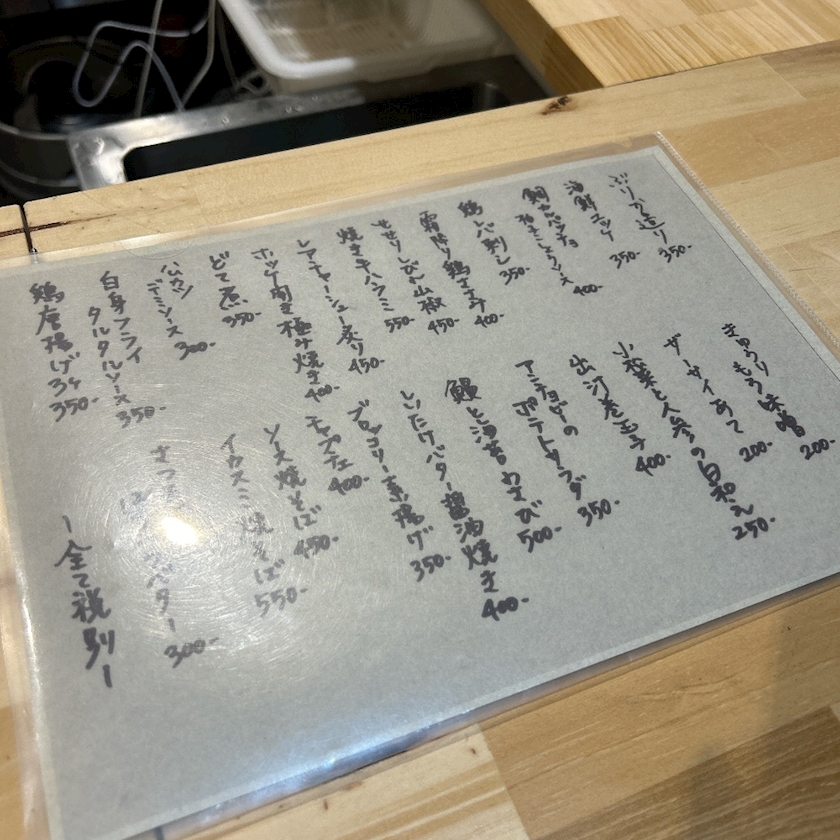 ぶりお造り 350-
海鮮ユッケ 350-
鯛カルパッチョ
柚子こしょうソース 400-
鶏ハツ刺し 350-
霜降り鶏ささみ 400-
せせりしびれ山椒 450-
焼き牛ハラミ 550-
レアチャーシュー炙り 450-
ホッケ開き極み焼き 400-
どて煮 350-
ハムカツ
デミソース 300-
白身フライ
タルタルソース 350-
鶏唐揚げ3ケ 350-
きゅうり
もろ味噌 200-
ザーサイあて 200-
小松菜と人参の白和え 250-
出汁巻玉子 400-
アンチョビーの
ポテトサラダ 350-
鰻と海苔わさび 500-
しいたけバター醤油焼き 400-
ブロッコリー素揚げ 350-
チャプチェ 400-
ソース焼そば 450-
イカスミ焼そば 550-
さつ
バター 300-
ー全て税別ー